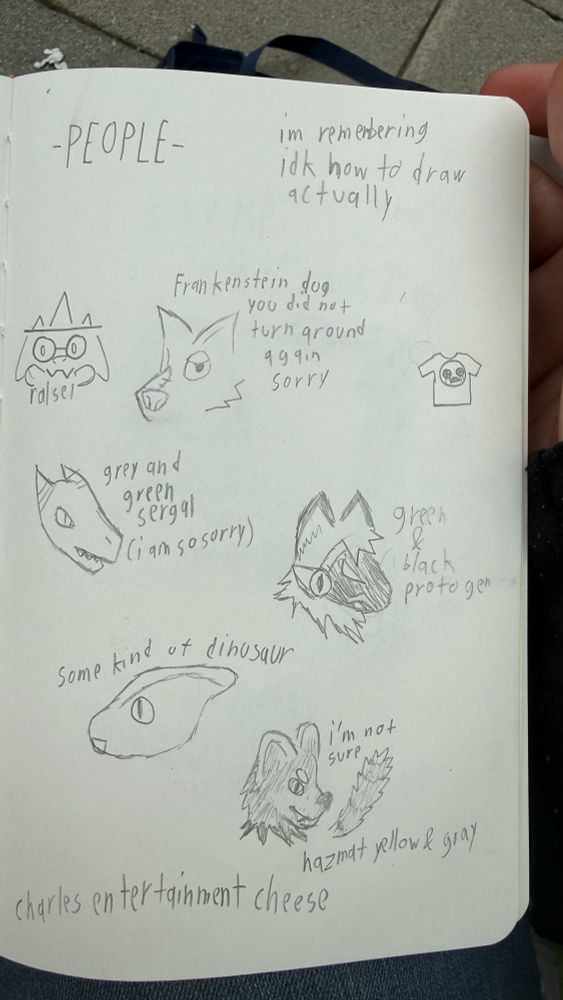 -PEOPLE-
im remembering
idk how to draw
actually
Frankenstein dog
you did not
turn around
again
sorry
ralsei
grey and
green
sergal
(i am so sorry)
green
&
black
protogen
some kind of dinosaur
i'm not
sure
hazmat yellow & gray
charles entertainment cheese